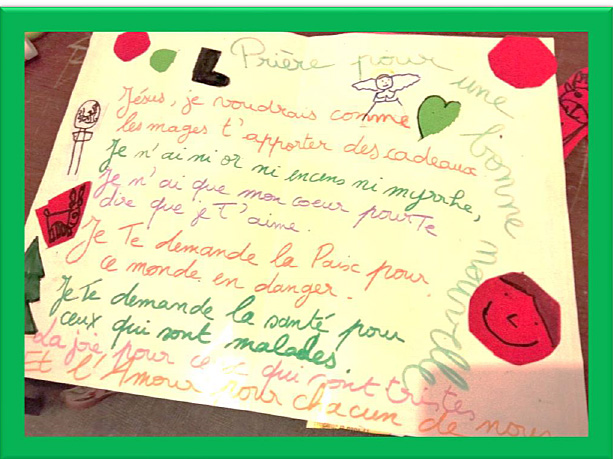 Prière pour une bonne nouvelle
Jésus, je voudrais comme
les mages t'apporter des cadeaux.
Je n'ai ni or ni encens ni myrrhe,
Je n'ai que mon coeur pour Te
dire que je T'aime.
Je Te demande la Paix pour
ce monde en danger.
Je Te demande la santé pour
ceux qui sont malades.
La joie, pour ceux qui sont tristes
Et l'Amour pour chacun de nous